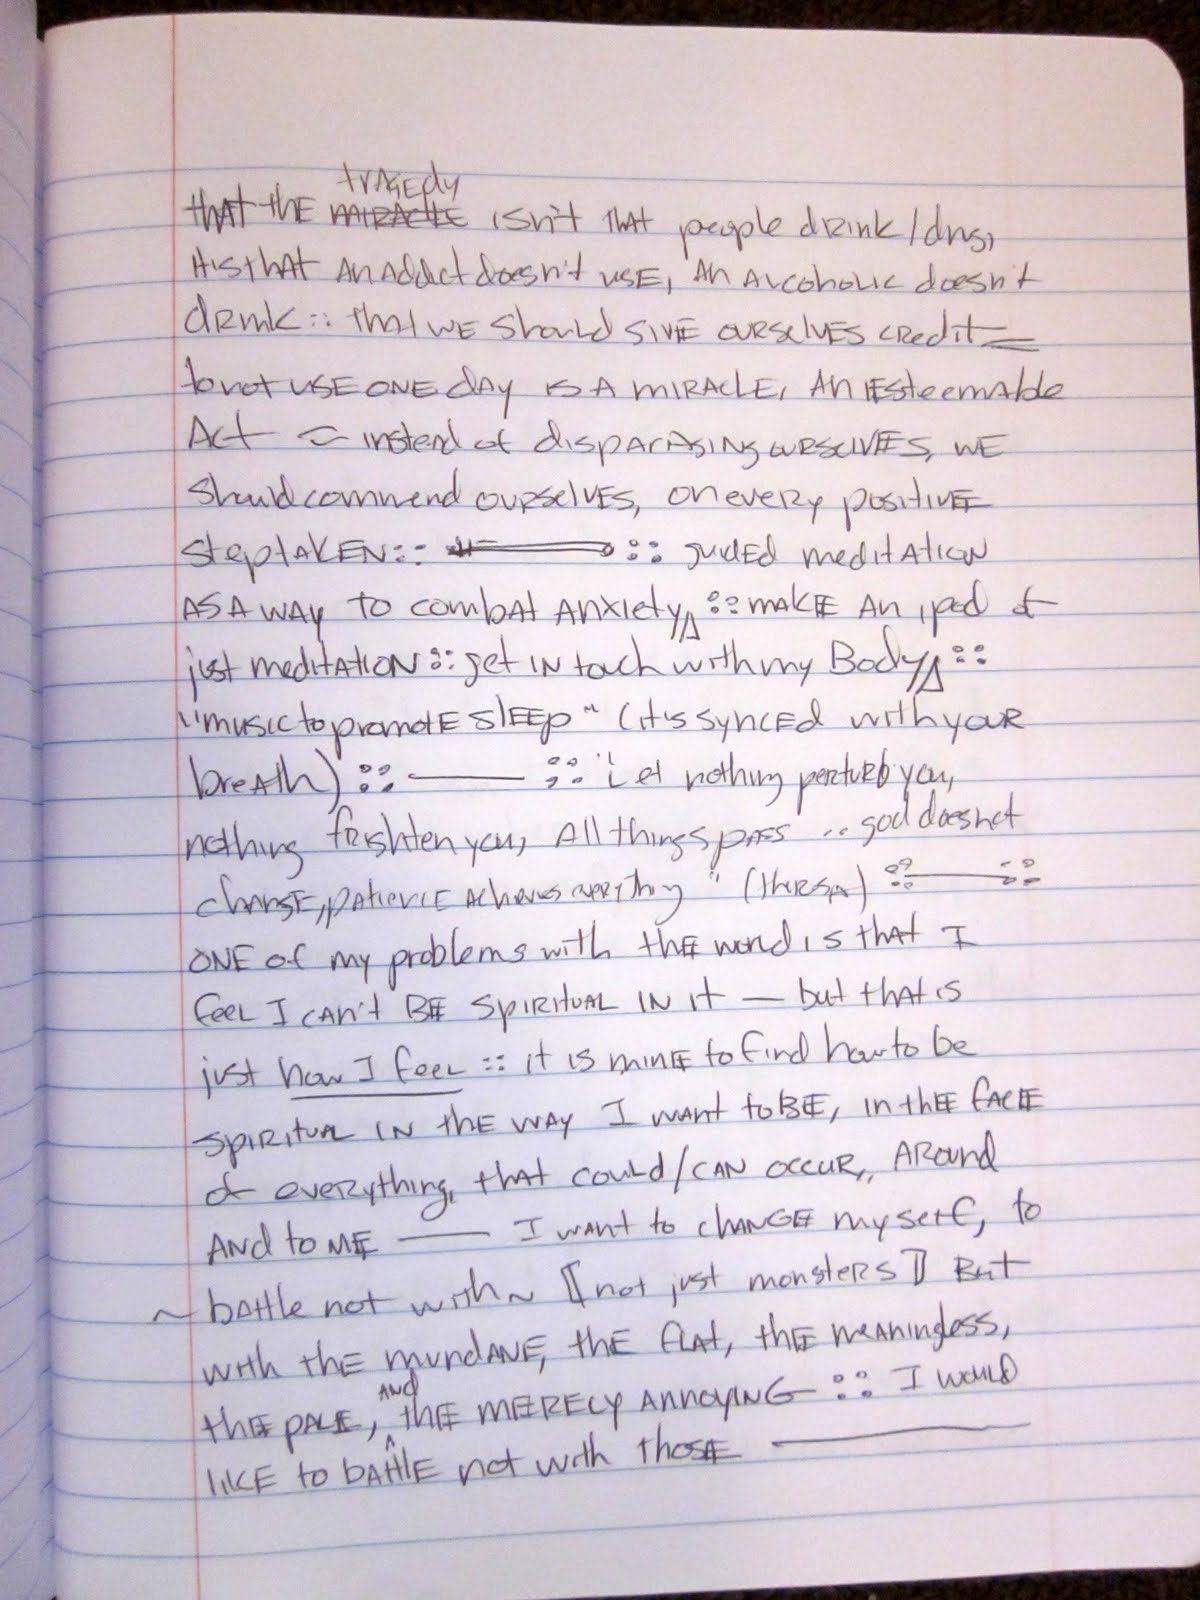 that the tragedy miracle isn't that people drink/drug,
it is that an addict doesn't use, an alcoholic doesn't
drink :: that we should give ourselves credit —
to not use one day is a miracle, an esteemable
act ~ instead of disparaging ourselves, we
should commend ourselves, on every positive
step taken :: —— :: guided meditation
as a way to combat anxiety △ :: make an ipod of
just meditation :: get in touch with my Body △ ::
"music to promote sleep" (it's synced with your
breath) :: —— :: "Let nothing perturb you,
nothing frighten you, All things pass .. god does not
change, patience achieves everything" (thersa) :: —— ::
one of my problems with the world is that I
feel I can't be spiritual in it — but that is
just how I feel :: it is mine to find how to be
spiritual in the way I want to be, in the face
of everything, that could/can occur, around
and to me —— I want to change myself, to
~ battle not with ~ [[not just monsters]] But
with the mundane, the flat, the meaningless,
the pale, and the merely annoying :: I would
like to battle not with those ——